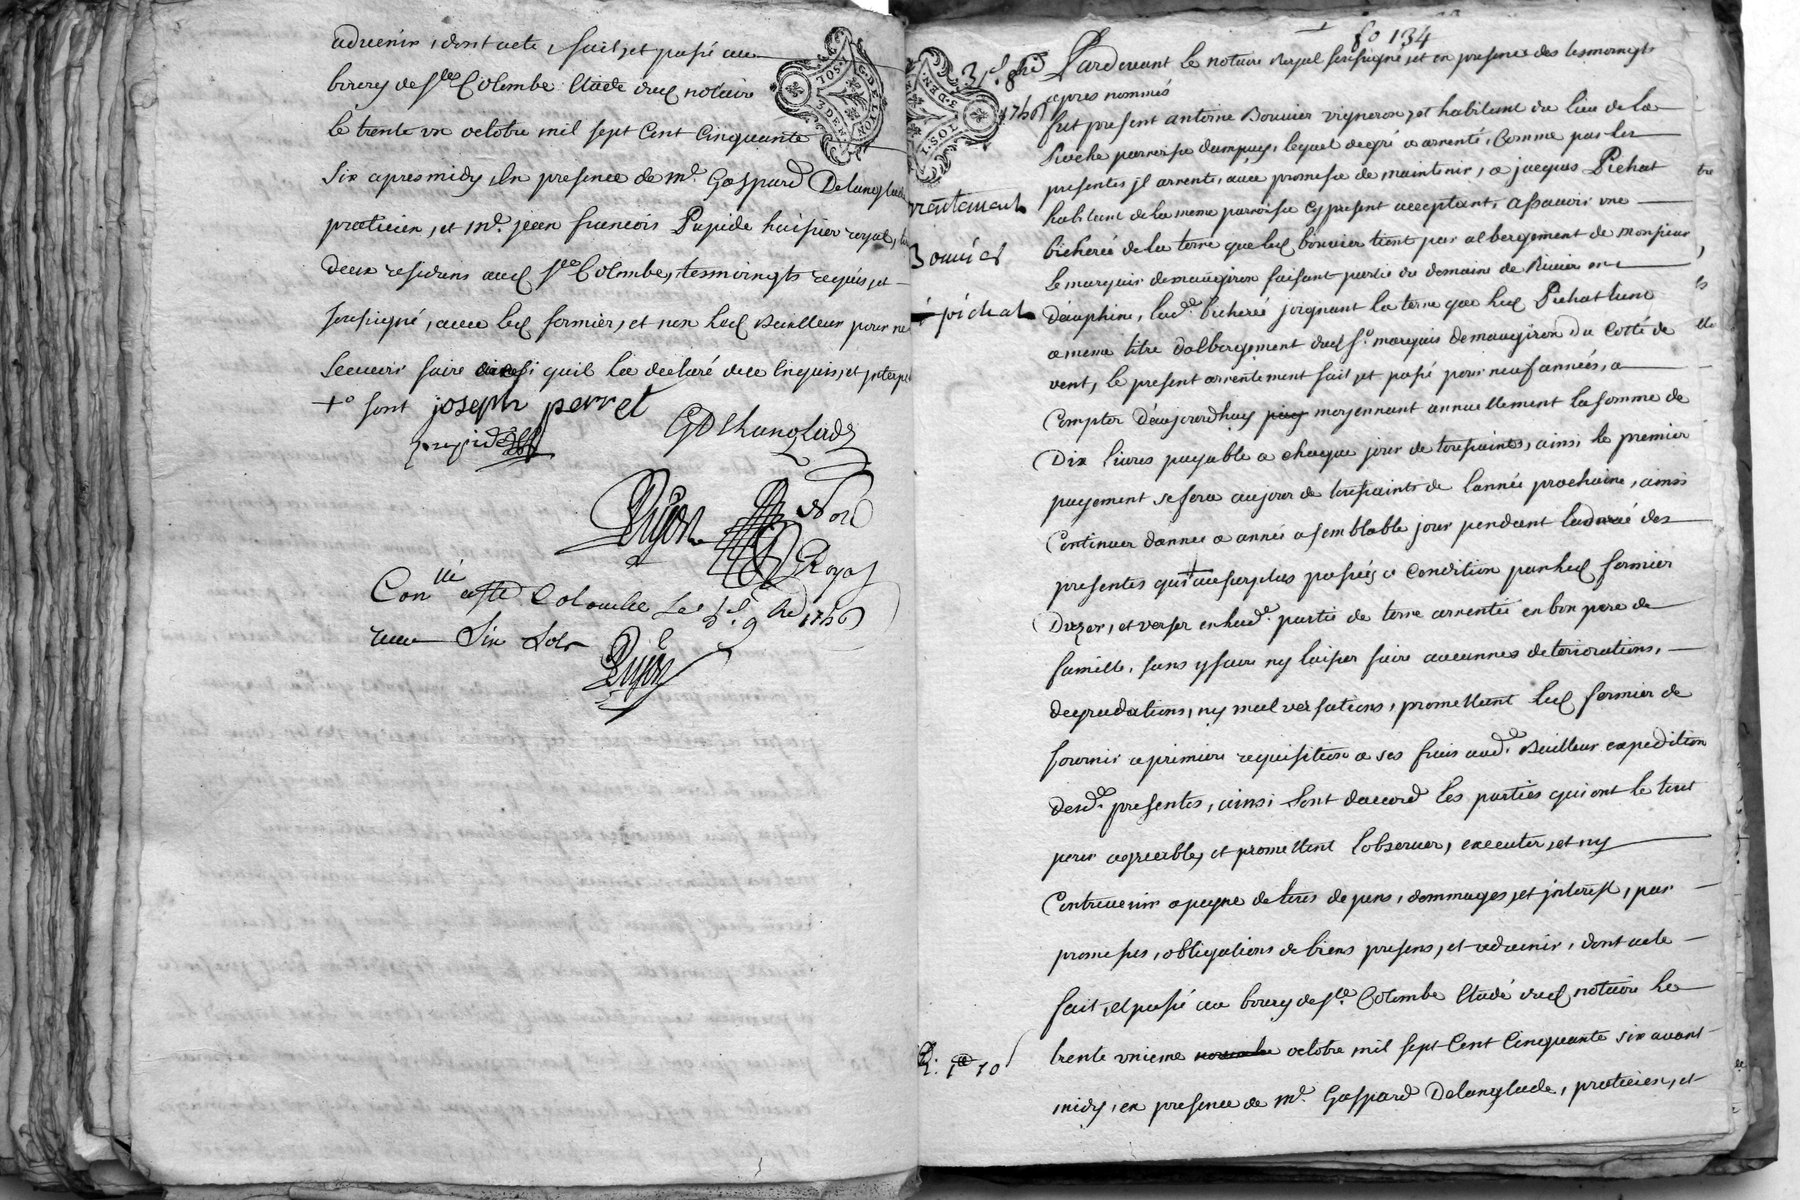 advenir, dont acte, fait, et passé au
bourg de Ste Colombe Etude dud notaire
le trente un octobre mil sept Cent Cinquante
Six apres midy, En presence de me. Gaspard Delanglade
praticien, et me. jean francois Pupide huissier royal, tous
deux residans aud Ste Colombe, tesmoingts requis, et
soussigné, avec led fermier, et non led Bailleur pour ne
Scavoir faire ainsi quil la declaré de ce Enquis, et jnterpellé
sont joseph perret
GDelanglade
Dujon Nore
Royal
Conllé a Ste Colombe le 9bre 1756
reçu Six Sols
Dujon
fo 134
Pardevant le notaire royal soussigné, et en presence des tesmoingts
apres nommés
fut present antoine Bouvier vigneron, et habitant du lieu de la
Roche parroisse dampuis, lequel de gré a arrenté, Comme par les
presentes jl arrente, avec promesse de maintenir, a jacques Pichat
habitant de la meme parroisse cy present acceptant, a scavoir une
bicherée de la terre que led bouvier tient par albergement de monsieur
le marquis de maugiron faisant partie du domaine de en
dauphiné, lade. bicherée joignant la terre que led Pichat tient
a meme titre dalbergement dud Sr. marquis de maugiron du Cotté de
vent, le present arrentement fait, et passé pour neuf années, a
Compter daujourdhuy moyennant annuellement la somme de
Dix livres payable a chaque jour de toussaints, ainsi le premier
payement se fera au jour de toussaints de lannée prochaine, ainsi
Continuer dannée a année a semblable jour pendant la durée des
presentes qui sont au surplus passées a Condition par led fermier
Duzer, et verser en lade. partie de terre arrentée en bon pere de
famille, sans y faire ny laisser faire aucunnes deteriorations,
degradations, ny malversations, promettant led fermier de
fournir a premiere requisition a ses frais aud. Bailleur expedition
desd. presentes, ainsi sont daccord les parties qui ont le tout
pour agreable, et promettent lobserver, executer, et ny
Contrevenir a peyne de tous depens, dommages, et jnterest, par
promesses, obligations de biens presens, et advenir, dont acte
fait, et passé au bourg de Ste. Colombe Etude dud notaire le
trente unieme novembre octobre mil sept Cent Cinquante six avant
midy, en presence de me. Gaspard Delanglade, praticien, et
1756
arrentement
Bouvier
a pichat